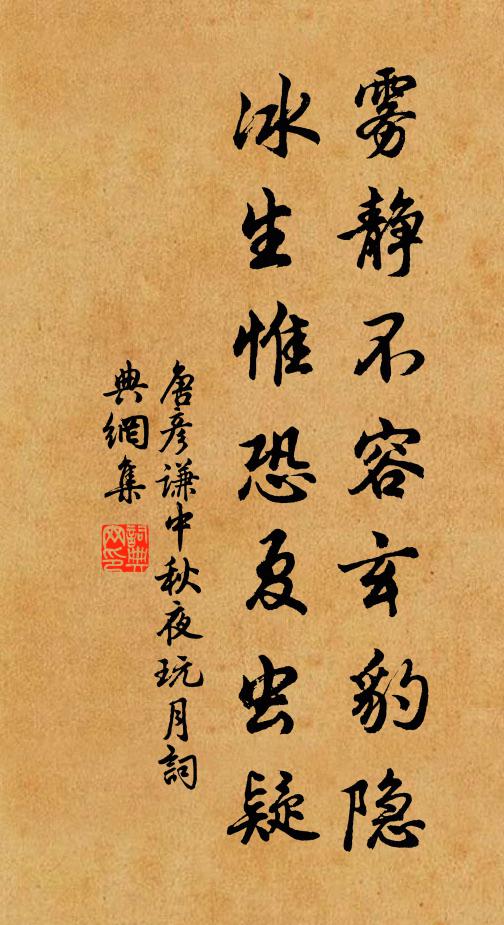 雾静不容玄豹隐
冰生惟恐夏虫疑
唐彦谦中秋夜玩月詞
典網集
詞典网印